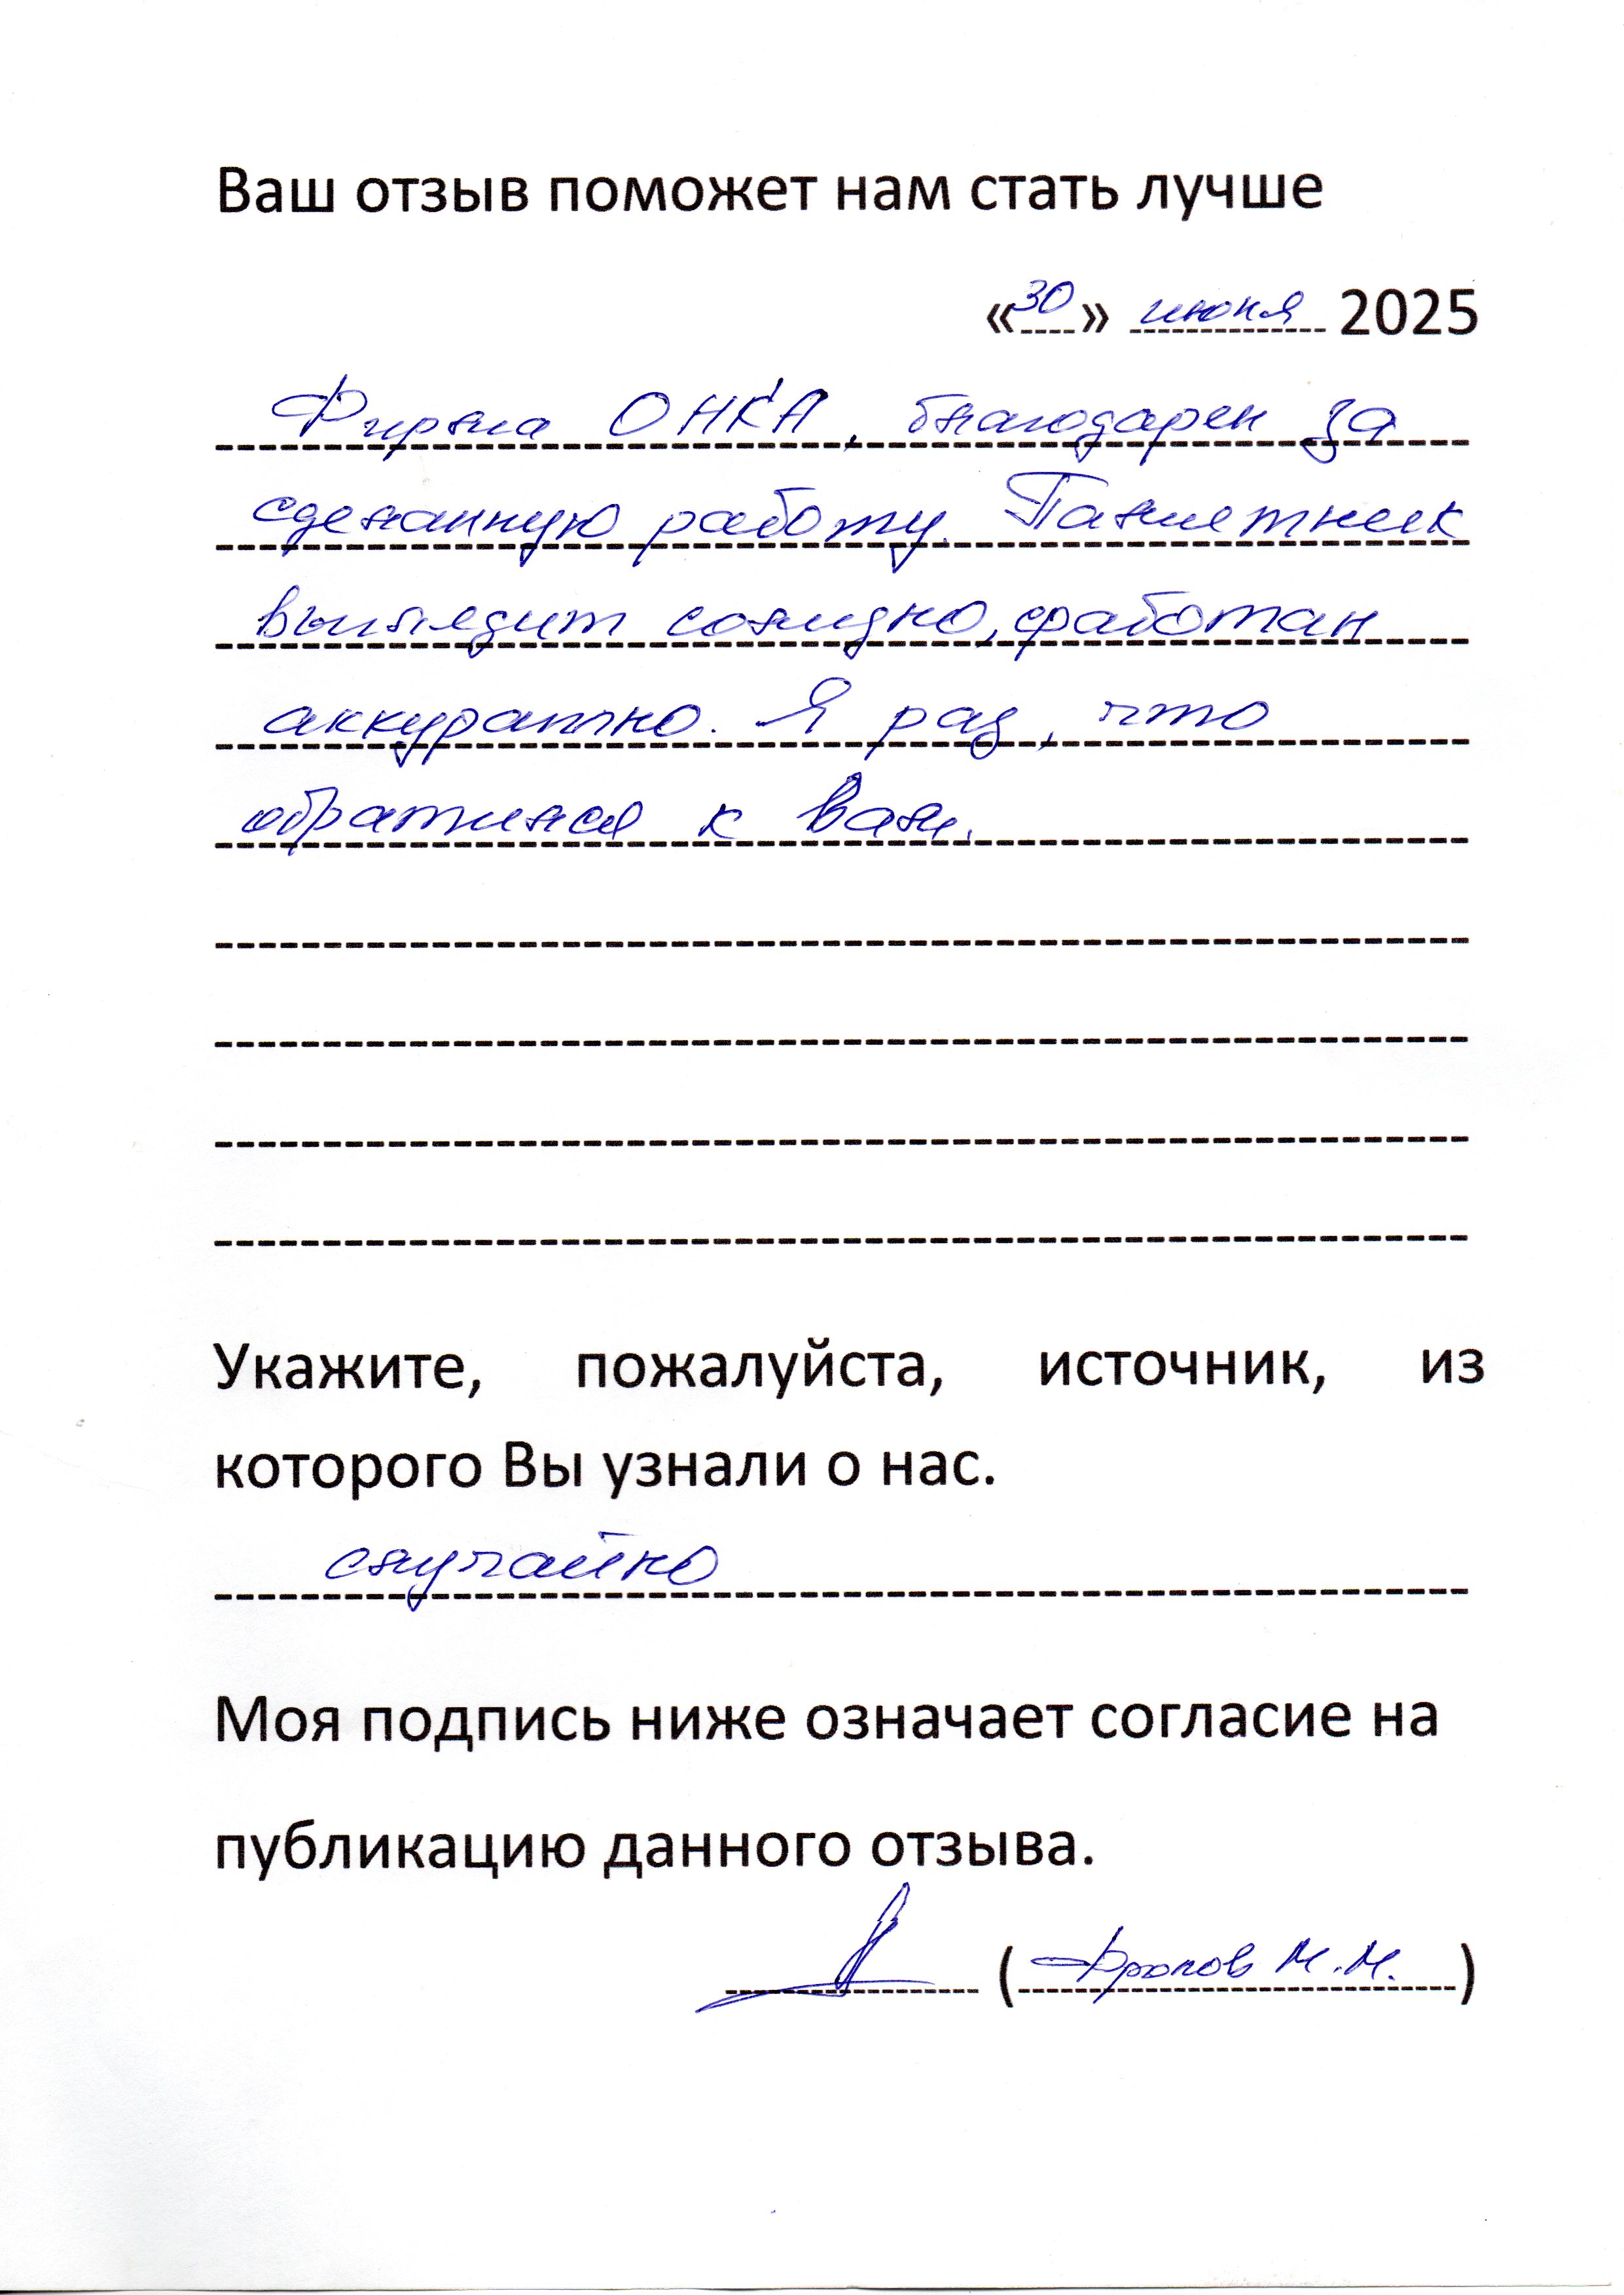 Ваш отзыв поможет нам стать лучше
«30» июня 2025
Фирма ОНИКА, благодарен за
сделанную работу. Памятник
выглядит солидно, сработан
аккуратно. Я рад, что
обратился к Вам.
Укажите, пожалуйста, источник, из
которого Вы узнали о нас.
случайно
Моя подпись ниже означает согласие на
публикацию данного отзыва.
( М.М.)